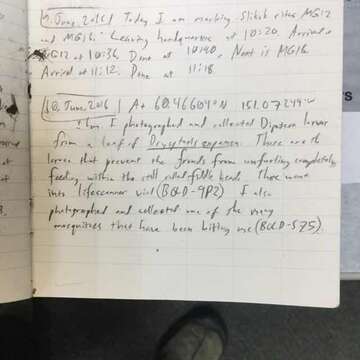 9. June, 2016 | Today I am reaching Slikok sites MG12
and MG16. Leaving headquarters at 10:20. Arrived at
MG12 at 10:36. Done at 10:40. Next is MG16.
Arrived at 11:12. Done at 11:18
10. June, 2016 | At 60.46604°N 151.07244°W
I photographed and collected Dipteran larvae
from a leaf of Dryopteris expansa. These are the
larvae that prevent the fronds from unfurling completely,
feeding within the still rolled fiddle head. These went
into lifescanner vial (BOLD-9P2) I also
photographed and collected one of the many
mosquitoes that have been biting me (BOLD-S75).